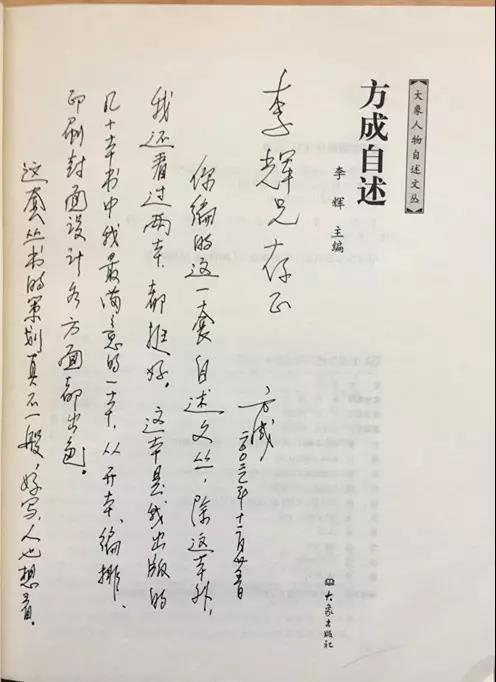 大象人物自述文丛
方成自述
李辉 主编
大象出版社
李辉兄存正
方成
二〇〇三年十二月廿五日
你编的这一套自述文丛,除这本外,
我还看过两本,都挺好。这本是我出版的
几十本书中我最满意的一本,从开本、编排、
印刷封面设计各方面都出色。
这套丛书的策划真不一般,好写,人也想看。